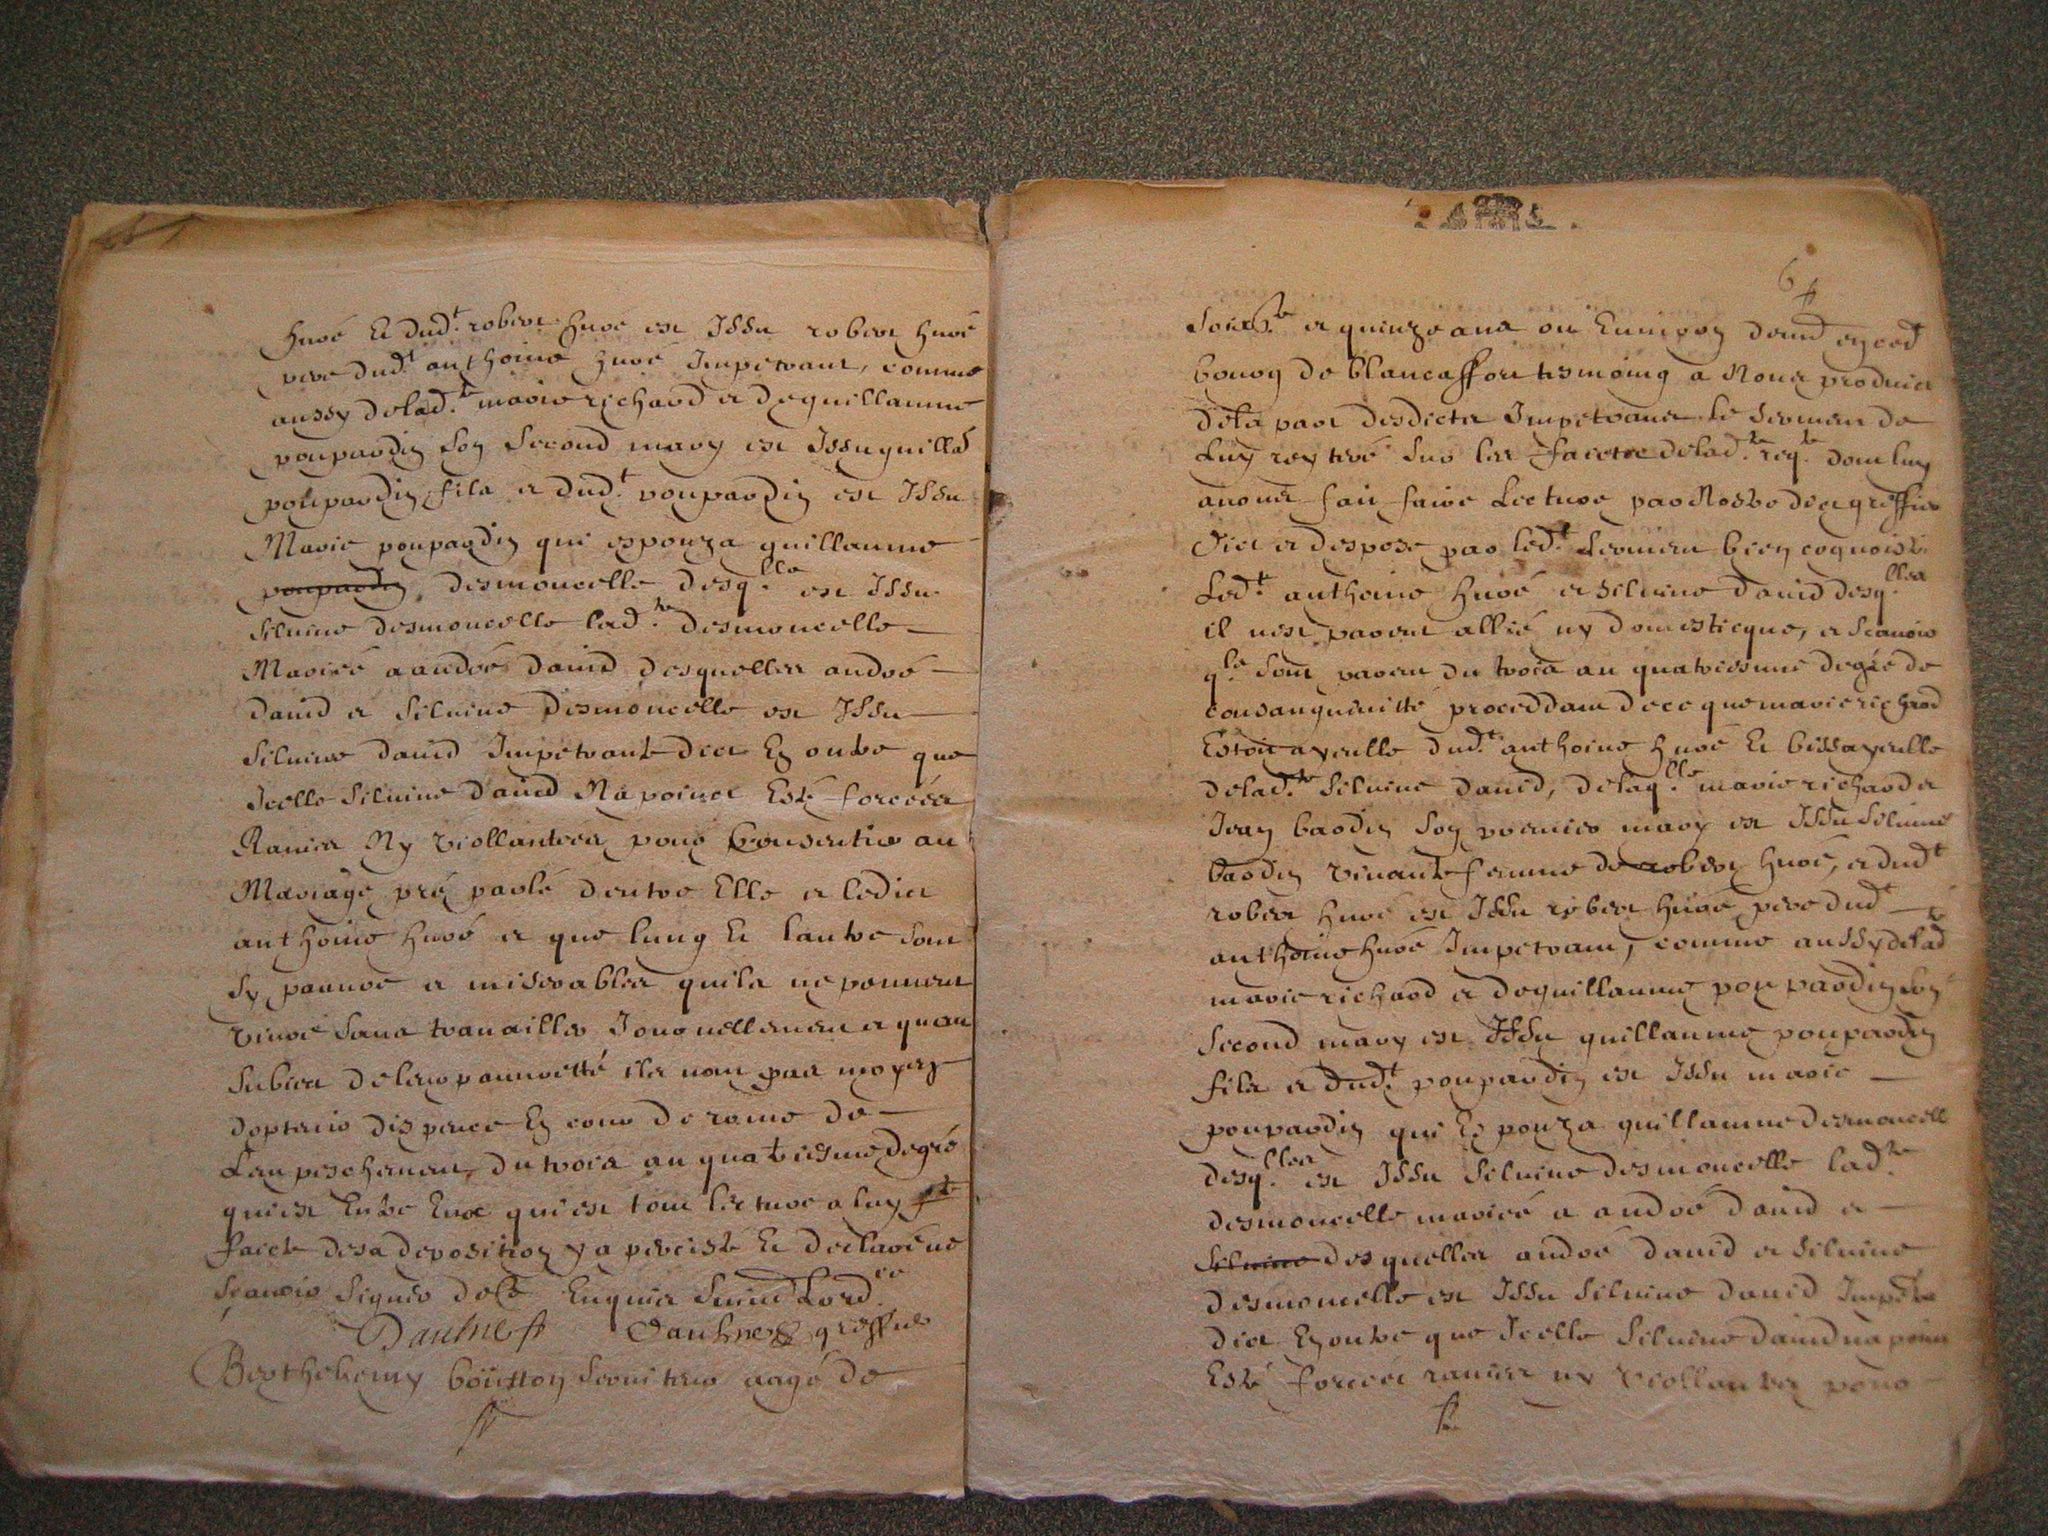 hué et dud.t robert hué est Issu robert hué
pere dud.t anthoine hué Impetrant, comme
aussy delad.te marie richard et de guillaume
poupardin son second mary est Issu guill.e
poupardin fils et dud.t poupardin est Issu
Marie poupardin qui espouza guillaume
poupardin, desmoucelle desq.lle est Issu
Siluine desmoucelle lad.te desmoucelle
Mariée a andré dauid desquelles andré
dauid et Siluine Desmoucelle est Issu
Siluine dauid Impetrante dict En outre que
Icelle Siluine dauid Na poinct Esté forcée
Rauie Ny viollantée pour Consentir au
Mariage pré parlé dentre Elle et ledict
anthoine hué et que lung Et lautre sont
Sy pauure et miserables quils ne peuuent
viure sans trauailler Journellement et quau
Subiect de leur pauureté ils nont pas moyen
doptenir dispence En cour de rome de
Lenpeschement du trois au quatriesme degré
qui est Entre Eux qui est tout lecture a luy
faicte desa deposition y a percisté Et declaré ne
Scauoir Signer de ce Enquis Suiu.t Lord.ce
greffier
Berthelemy bouston seruiteur aagé de
6
Soix.te et quinze ans ou Enuiron dem.t en ced.t
bourg de blancaffort tesmoing a Nous produict
dela part desdicts Impetrans le serment de
Luy reytéré Sur les faictz delad.te req.te dont luy
auons fait faire Lecture par Nostre dict greffier
Dict et depose par led.t serment bien cognoistre
Led.t anthoine hué et siluine dauid desq.lles
il nest parent allié ny domesticque, et scauoir
q.ls sont parens du trois au quatriesme degré de
consanguinitté proceddant dece que marie richard
Estoit ayeulle dud.t anthoine hué Et bissayeulle
delad.te Siluine dauid, delaq.lle marie richard et
Jean bardin son premier mary est Issu siluine
bardin viuante femme de robert hué, et dud.t
robert hué est Issu robert hué pere dud.t
anthoine hué Impetrant, comme aussy delad.te
marie richard et de guillaume poupardin son
second mary est Issu guillaume poupardin
fils et dud.t poupardin est Issu marie
poupardin qui Espouza guillaume desmoucelle
desq.lles est Issu siluine desmoucelle lad.te
desmoucelle mariée a andré dauid et
Siluine desquelles andré dauid et siluine
desmoucelle est Issu siluine dauid Imp.te
dict En outre que Icelle Siluine dauid na point
Esté forcée rauie ny viollantée pour